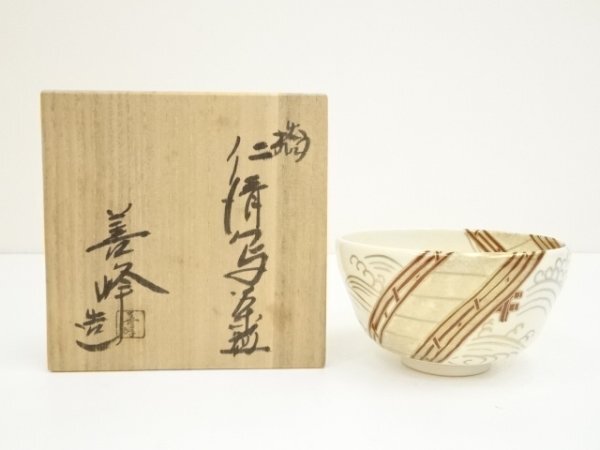 仁清写茶碗
善峰造